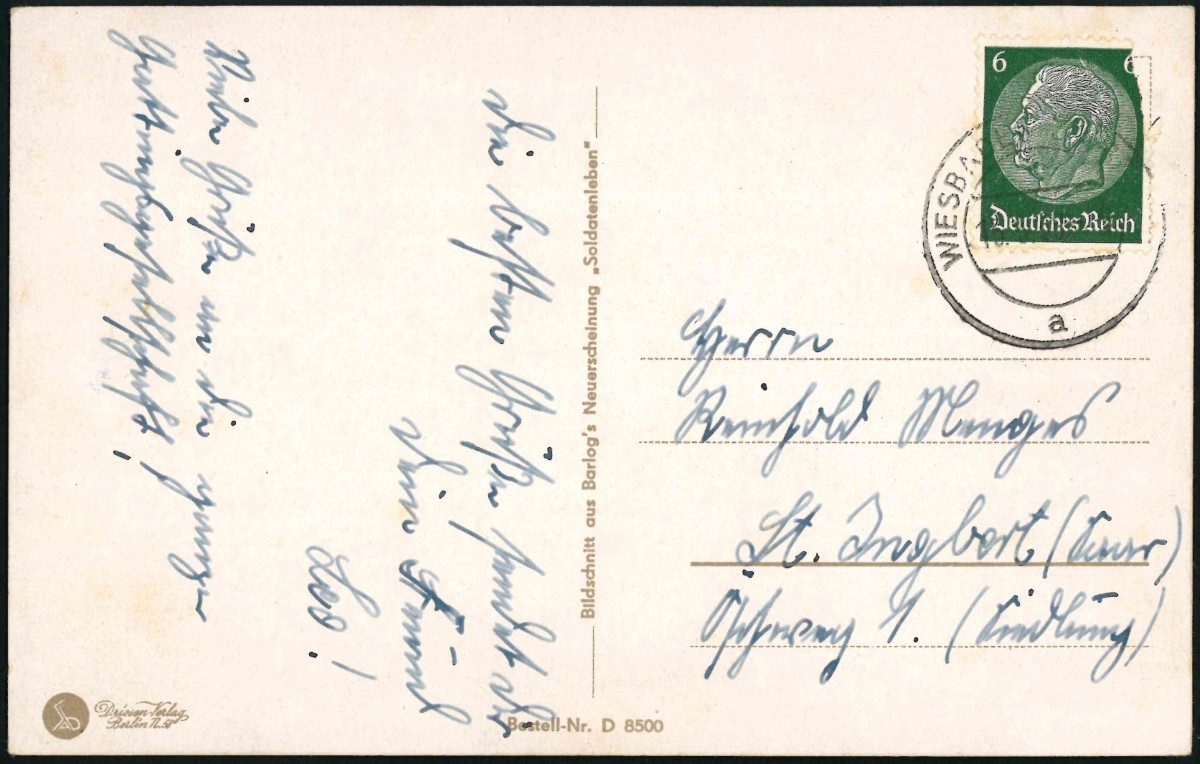 Die besten Grüße sendet dir
Dein Freund
Viele Grüße an die ganze
Bildschnitt aus Barlog's Neuerscheinung „Soldatenleben"
Bestell-Nr. D 8500
Driesen-Verlag
Berlin
6 6
Deutsches Reich
WIESBA
a
Herrn
Reinhold Menges
St. Ingbert (Saar)
1. (Siedlung)